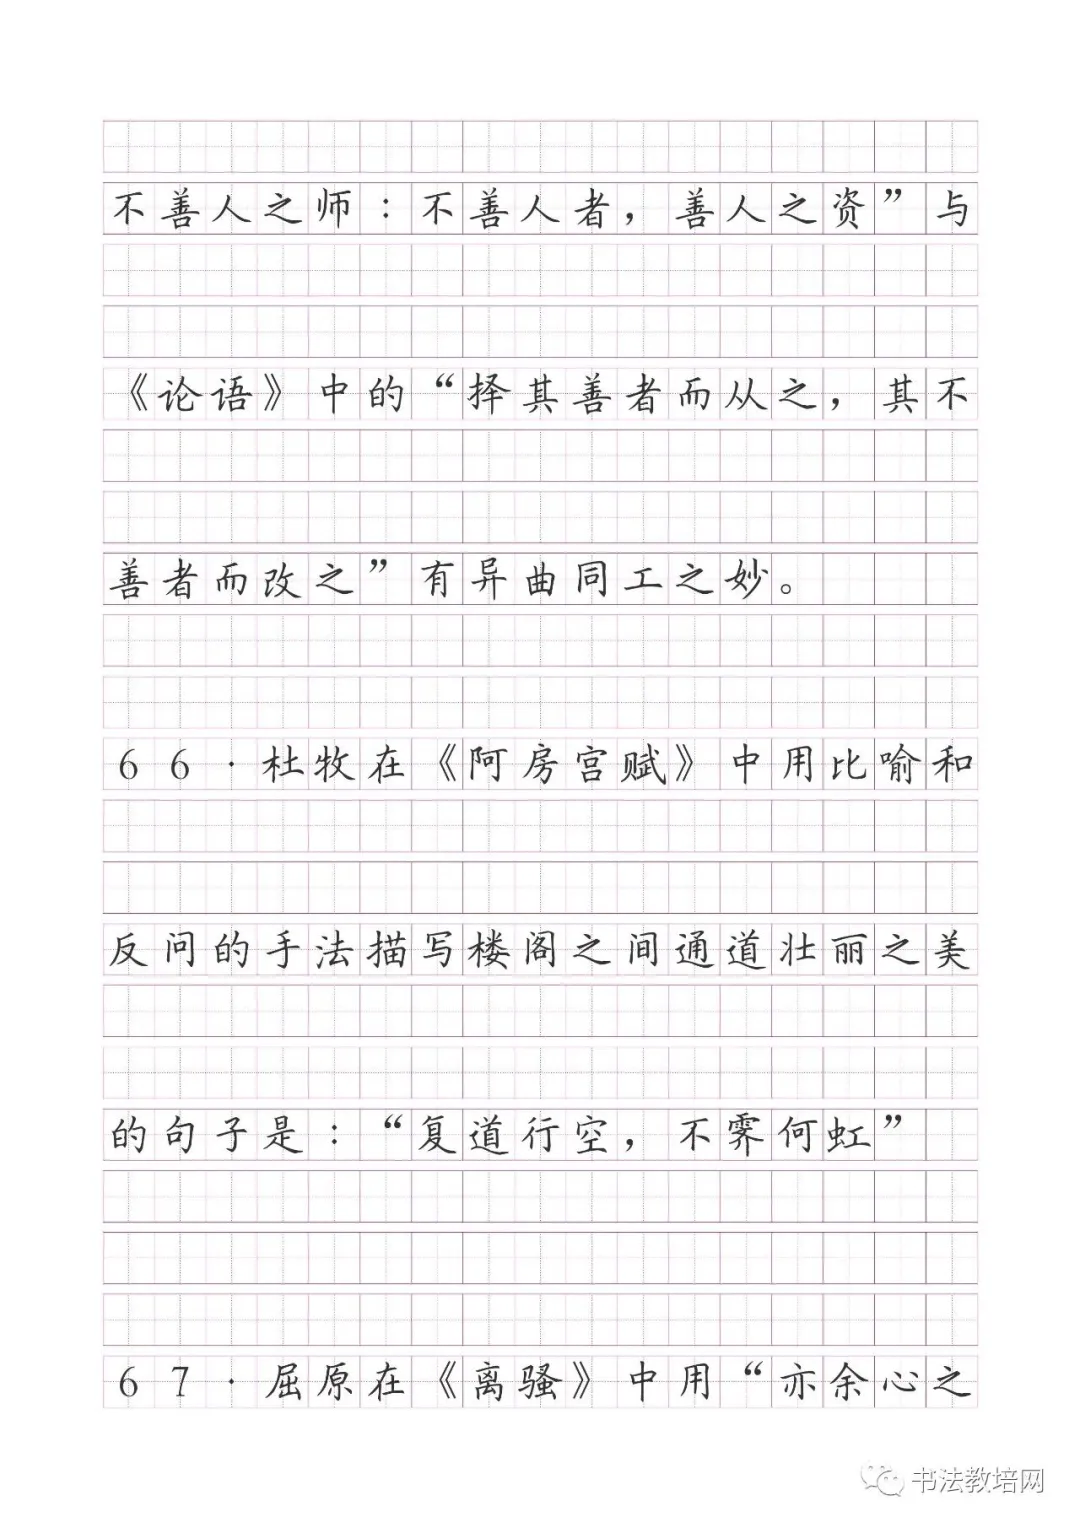 不善人之师：不善人者，善人之资”与
《论语》中的“择其善者而从之，其不
善者而改之”有异曲同工之妙。
66·杜牧在《阿房宫赋》中用比喻和
反问的手法描写楼阁之间通道壮丽之美
的句子是：“复道行空，不霁何虹”
67·屈原在《离骚》中用“亦余心之
书法教培网